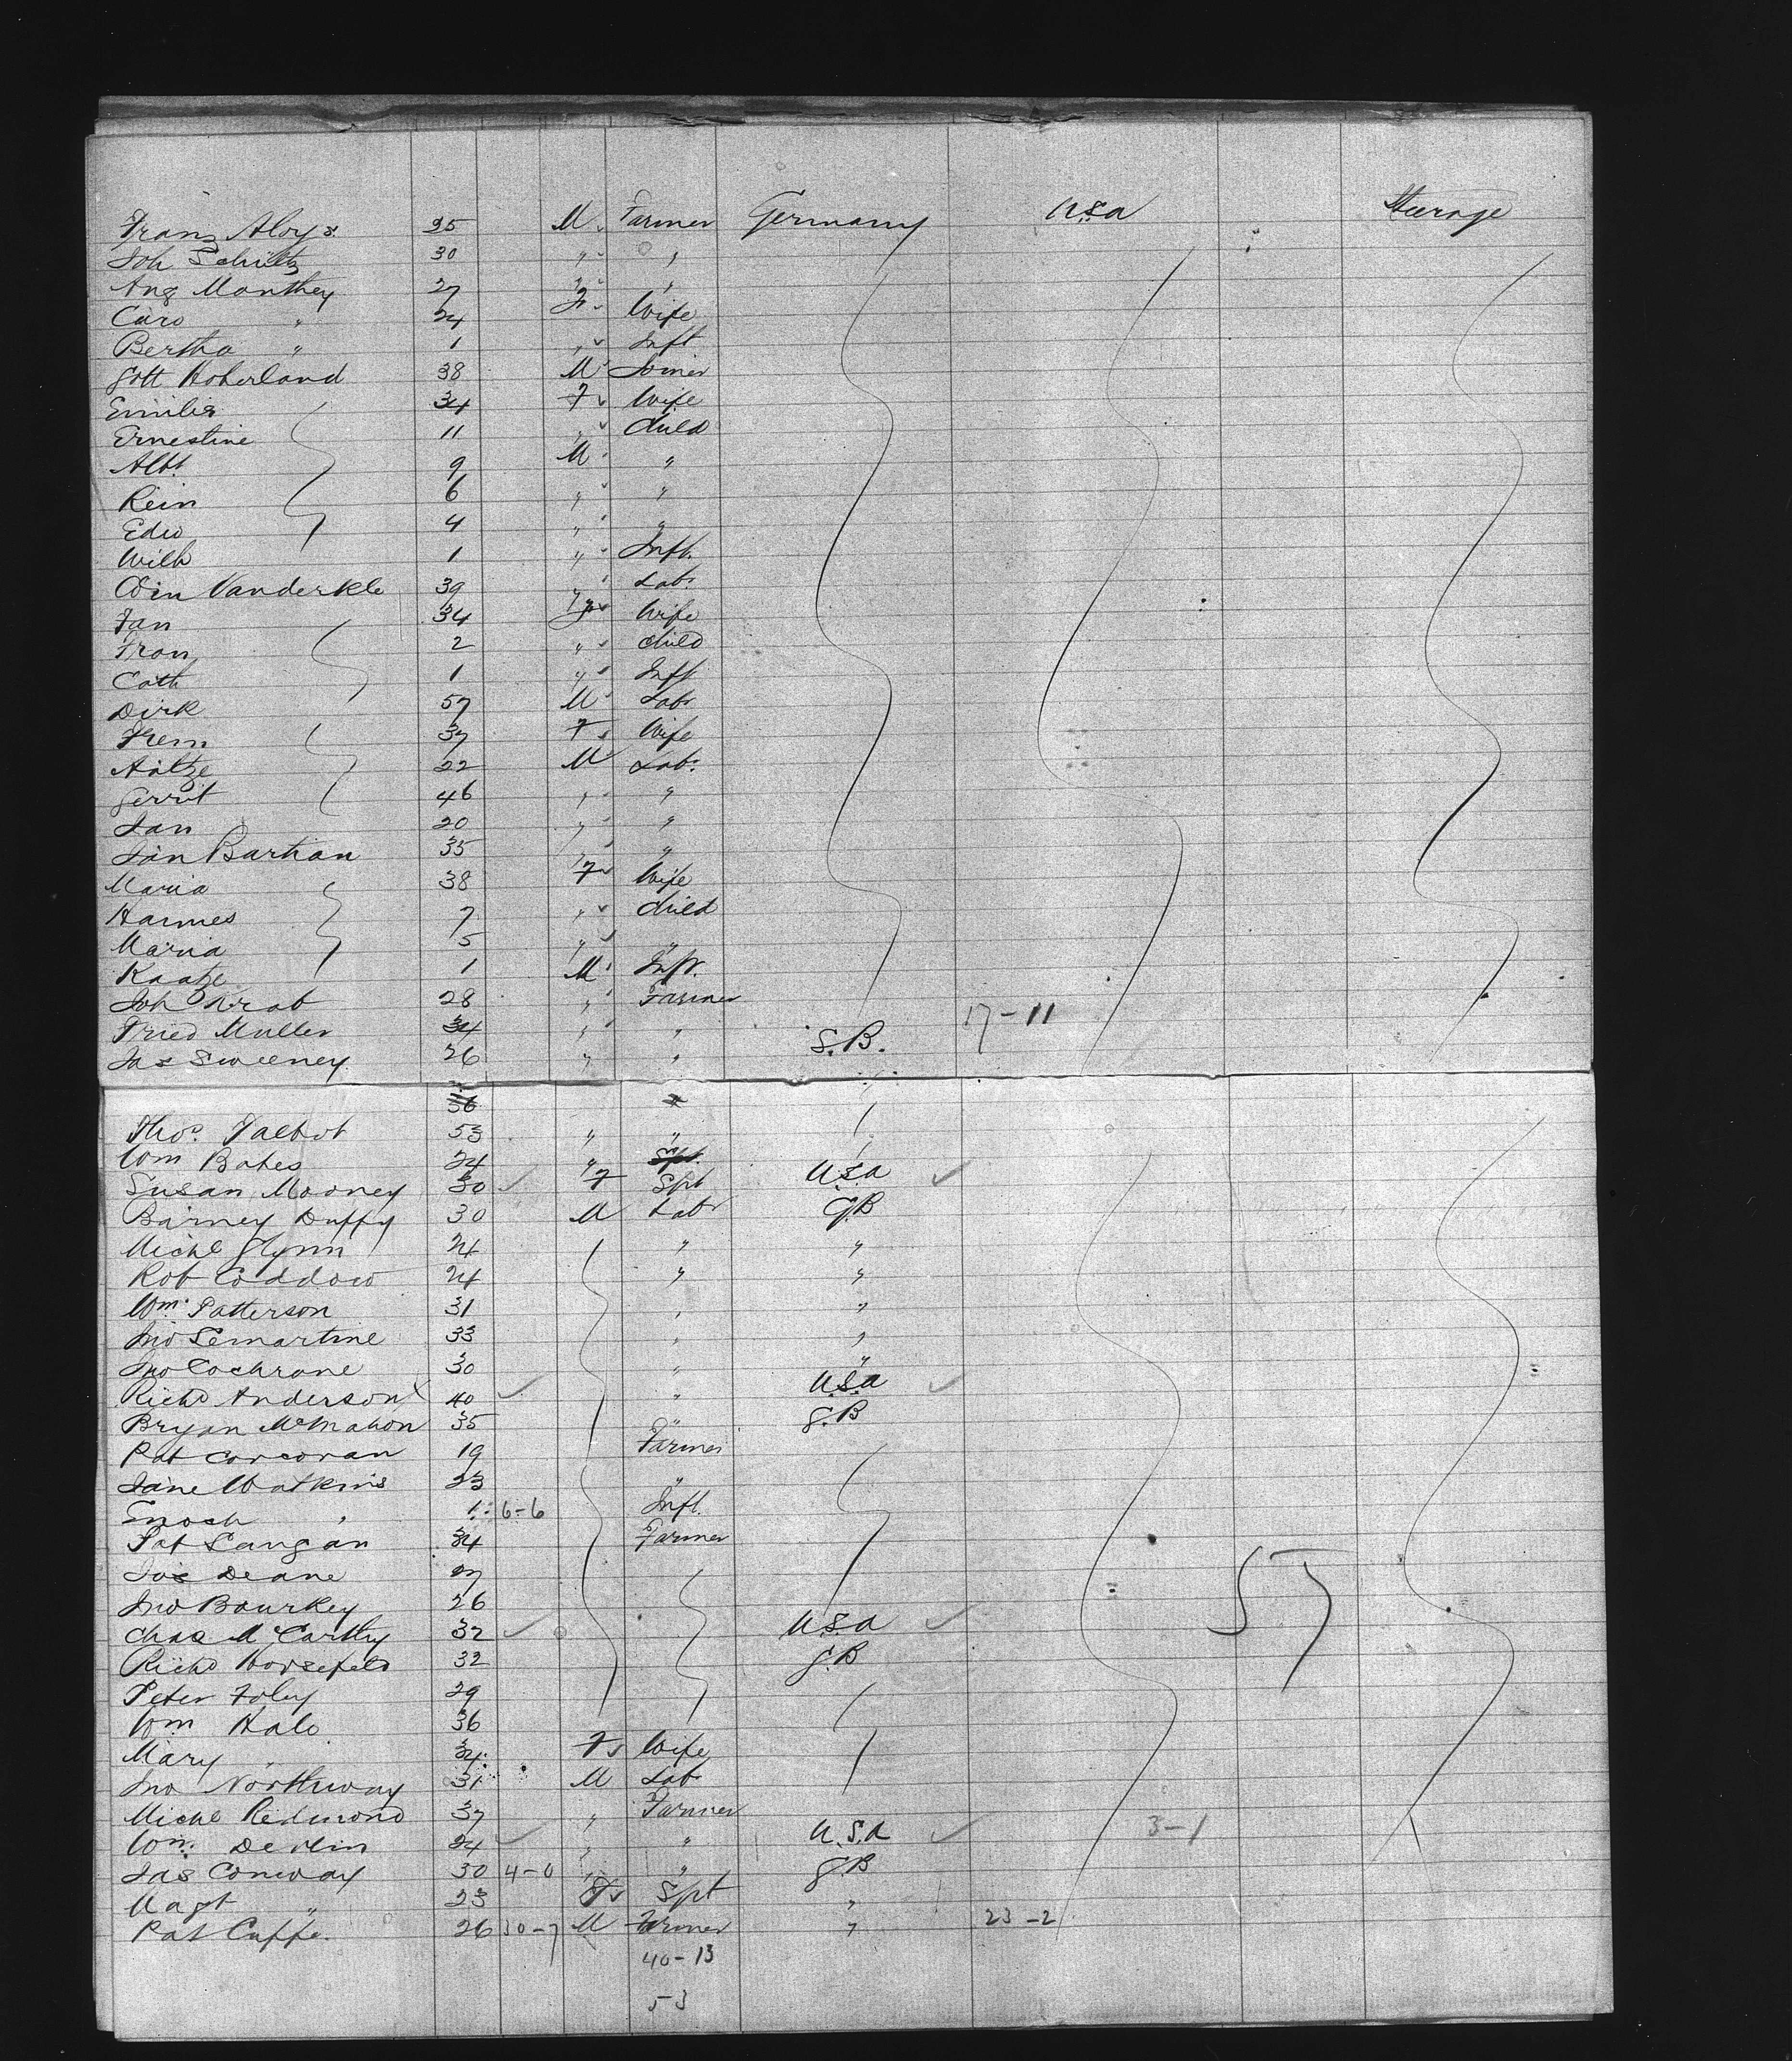 Franz Aloys 35 M Farmer Germany U.S.A Steerage
Joh Schultz 30 " "
Aug Manthey 27 " "
Caro " 24 F Wife
Bertha " 1 " Inft
Gott Hoherland 38 M Joiner
Emilie 34 F Wife
Ernestine 11 " child
Albt 9 M "
Rein 6 " "
Edw 4 " "
Wilh 1 " Inft.
Vanderkle 39 " Labr
Jan 34 F Wife
Fran 2 " child
Cath 1 " Inft
Dirk 57 M Labr
37 F Wife
Aaltze 22 M Labr.
Gerrit 46 " "
Jan 20 " "
Jan Bartian 35 " "
Maria 38 F Wife
Harmes 7 " child
Maria 5 " "
Kaatje 1 M Inft.
Joh Krab 28 " Farmer
Fried Muller 34 " " 17-11
Jas Sweeney 26 " " G.B.
36 "
Thos. Talbot 53 " "
Wm Bates 24 " Spt.
Susan Mooney 30 F Spt U.S.A
Barney Duffy 30 M Labr G.B
Michl Glynn 24 " "
Rob Coddow 24 " "
Wm. Patterson 31 " "
Jno Lemartine 33 " "
Jno Cochrane 30 " "
Richd Anderson 40 " U.S.A
Bryan McMahon 35 " G.B
Pat Corcoran 19 Farmer
Jane Watkins 23 "
Enoch " 1 6-6 Inft.
Pat Langan 34 Farmer
Jos Deane 27
Jno Bourkey 26
Chas McCarthy 32 U.S.A
Richd Horsefeld 32 G.B
Peter Foley 29
Wm Hale 36
Mary " 34 F Wife
Jno Northway 31 M Labr
Michl Redmond 37 " Farmer
Wm. Devlin 24 " " U.S.A 3-1
Jas Conway 30 4-0 " " G.B
Magt " 23 F Spt "
Pat Cuffe. 26 30-7 M Farmer " 23-2
40-13
53
57